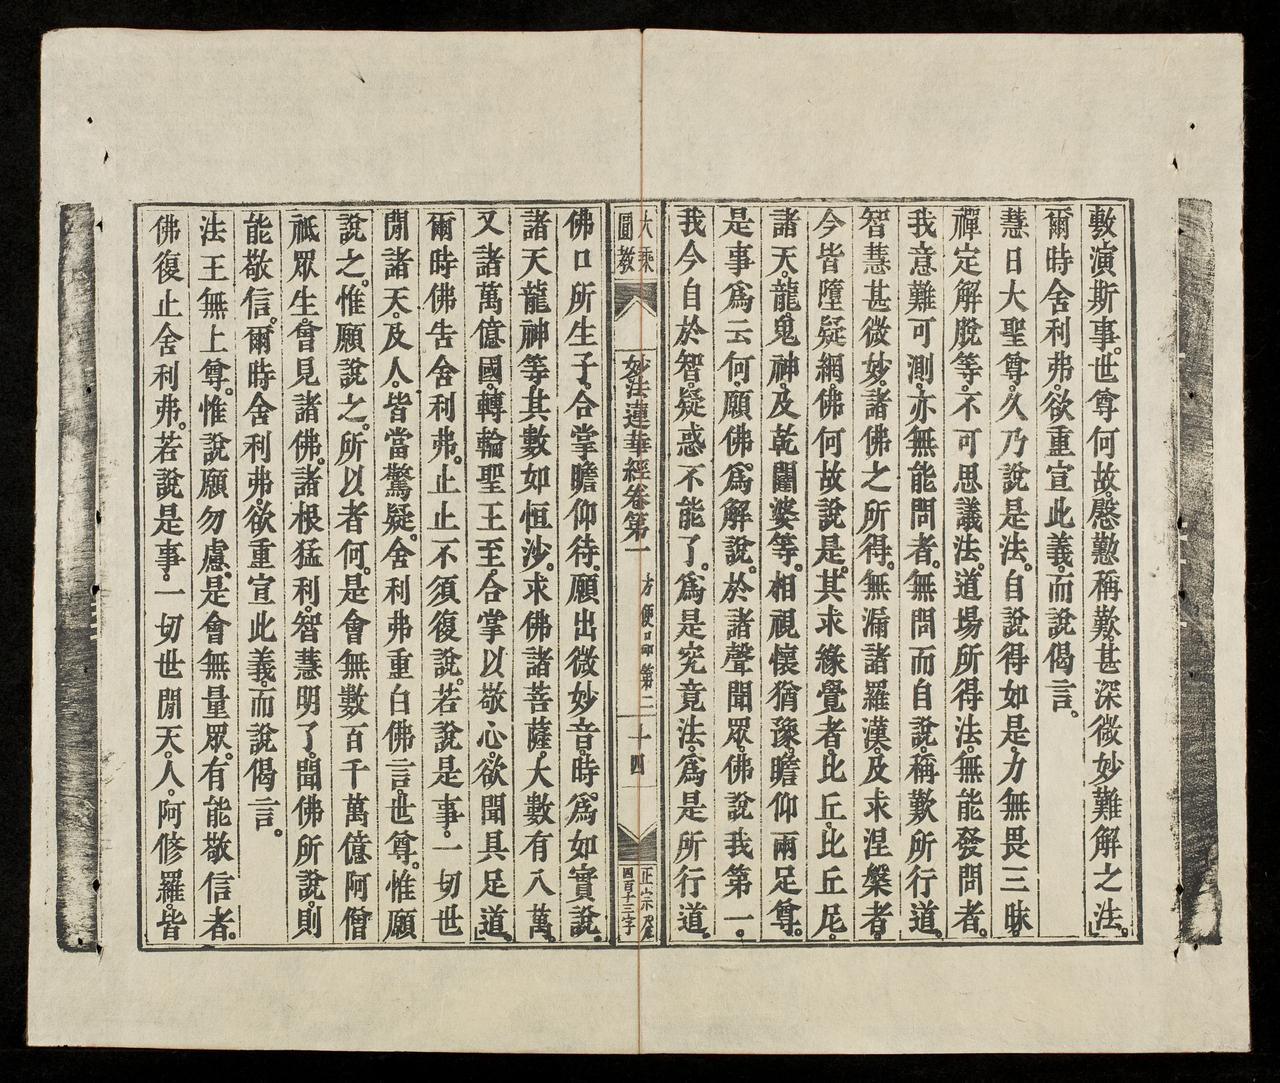 敷演斯事。世尊何故。慇懃稱歎。甚深微妙難解之法。
爾時舍利弗。欲重宣此義。而說偈言。
慧日大聖尊。久乃說是法。自說得如是。力無畏三昧。
禪定解脫等。不可思議法。道場所得法。無能發問者。
我意難可測。亦無能問者。無問而自說。稱歎所行道。
智慧甚微妙。諸佛之所得。無漏諸羅漢。及求涅槃者。
今皆墮疑網。佛何故說是。其求緣覺者。比丘。比丘尼。
諸天。龍。鬼神。及乾闥婆等。相視懷猶豫。瞻仰兩足尊。
是事為云何。願佛。為解說。於諸聲聞眾。佛說我第一。
我今自於智。疑惑不能了。為是究竟法。為是所行道。
大乘
圓教
妙法蓮華經卷第一 方便品第二 十四
正宗
四百二十三字
佛口所生子。合掌瞻仰待。願出微妙音。時。為如實說。
諸天龍神等。其數如恒沙。求佛諸菩薩。大數有八萬。
又諸萬億國。轉輪聖王至。合掌以敬心。欲聞具足道。
爾時佛告舍利弗。止止。不須復說。若說是事。一切世
間諸天。及人。皆當驚疑。舍利弗重白佛言。世尊。惟願
說之。惟願說之。所以者何。是會無數百千萬億阿僧
祇眾生。曾見諸佛。諸根猛利。智慧明了。聞佛所說。則
能敬信。爾時舍利弗。欲重宣此義。而說偈言。
法王無上尊。惟說願勿慮。是會無量眾。有能敬信者。
佛復止舍利弗。若說是事。一切世間天。人。阿修羅。皆